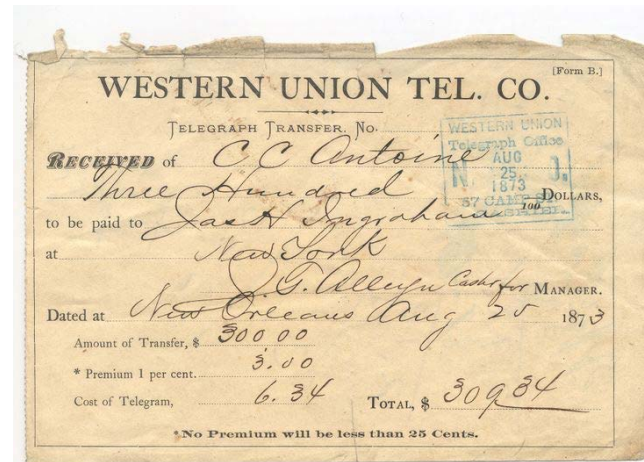 [Form B.]
WESTERN UNION TEL. CO.
TELEGRAPH TRANSFER. No.
WESTERN UNION
Telegraph Office
AUG
25
1873
N. O.
57 CAMP ST
RECEIVED of C C Antoine
Three Hundred 100 DOLLARS,
to be paid to Jas H Ingraham
at New York
J G. Alleyn Cash for MANAGER.
Dated at New Orleans Aug 25 1873
Amount of Transfer, $ 300 00
* Premium 1 per cent. 3.00
Cost of Telegram, 6.34 TOTAL, $ 309 34
*No Premium will be less than 25 Cents.